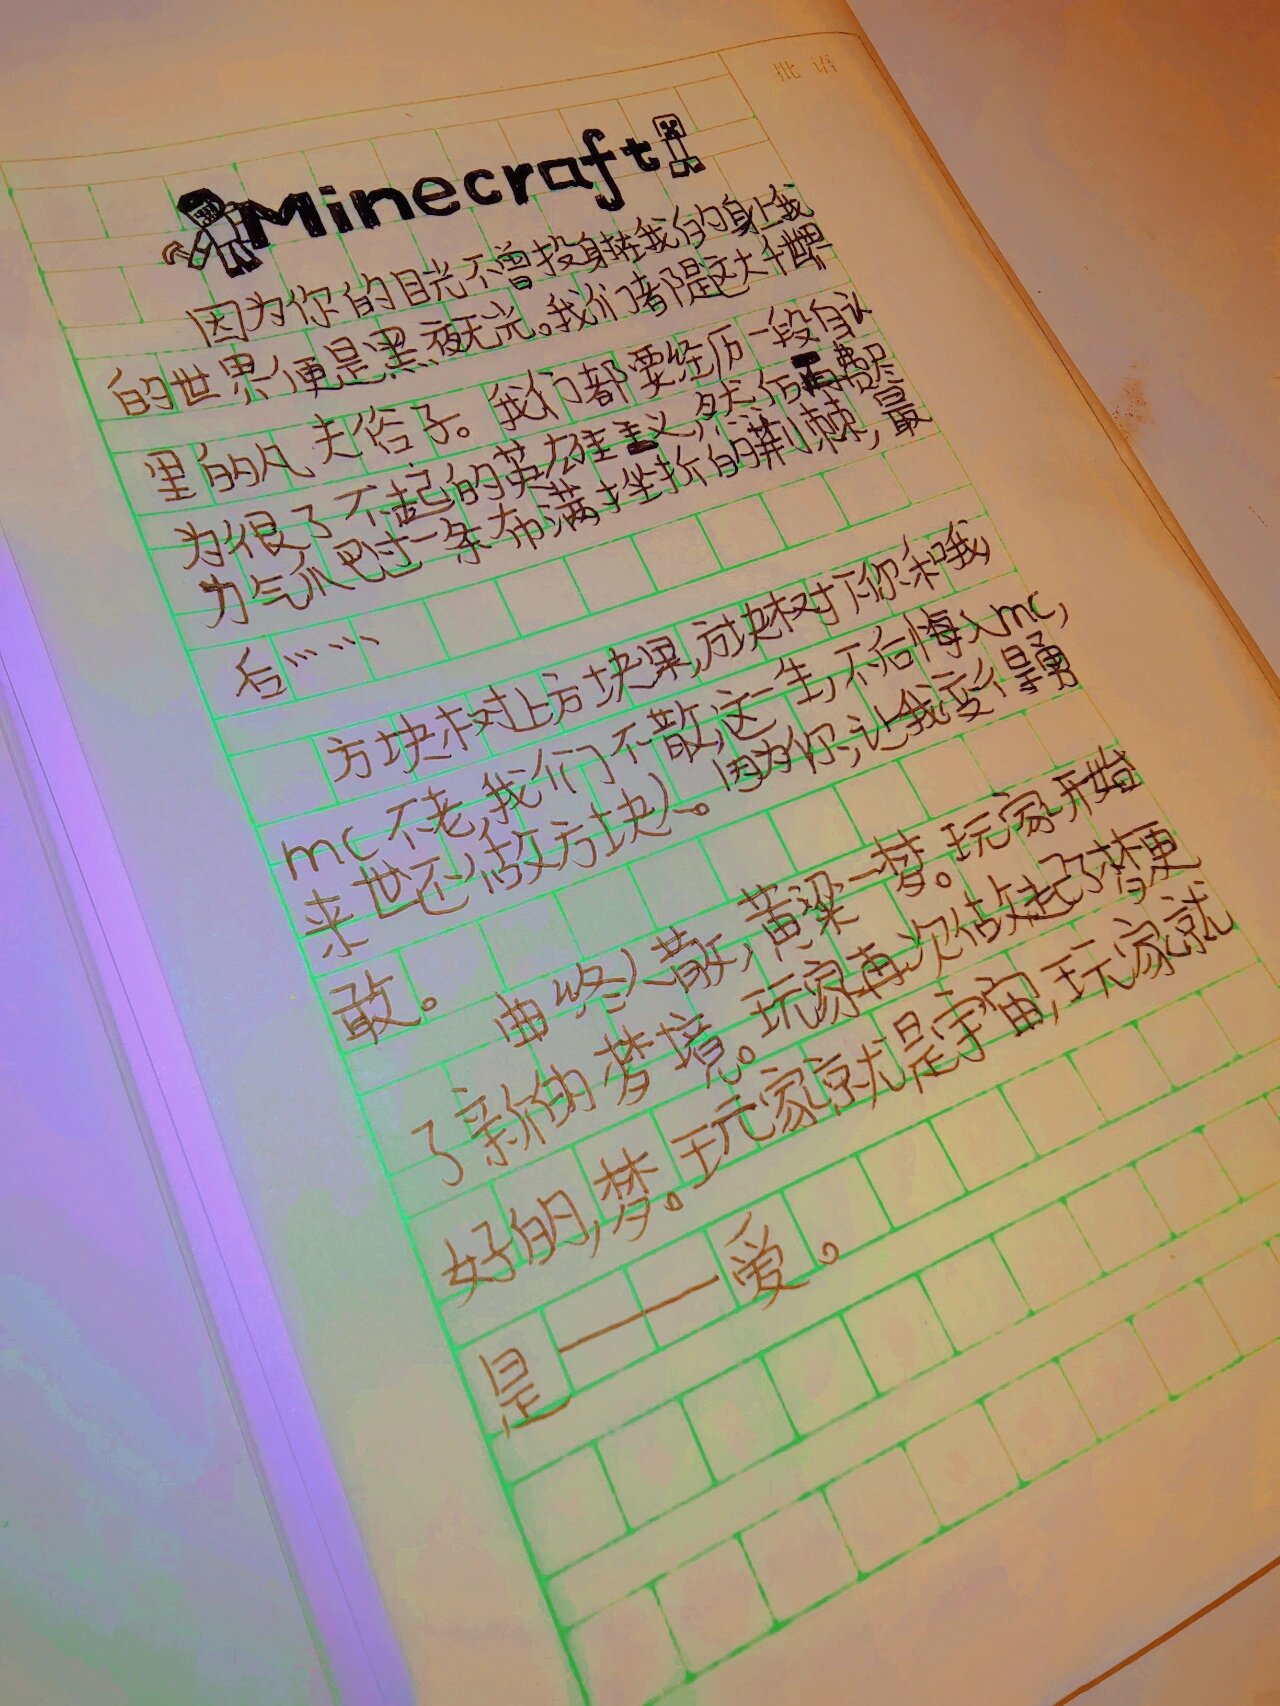 批语
Minecraft
因为你的目光不曾投射在我的身上我
的世界便是黑夜无光。我们都是这大千世界
里的凡夫俗子。我们都要经历一段自认
为很了不起的英雄主义,然后再费尽
力气爬过一条布满挫折的荆棘,最
后……
方块树上方块果,方块树下你和我
mc不老,我们不散,这一生,不后悔入mc,
来世还做方块人。因为你,让我变得勇
敢。
曲终人散,黄粱一梦。玩家开始
了新的梦境。玩家再次做起了梦更
好的,梦。玩家就是宇宙,玩家就
是——爱。